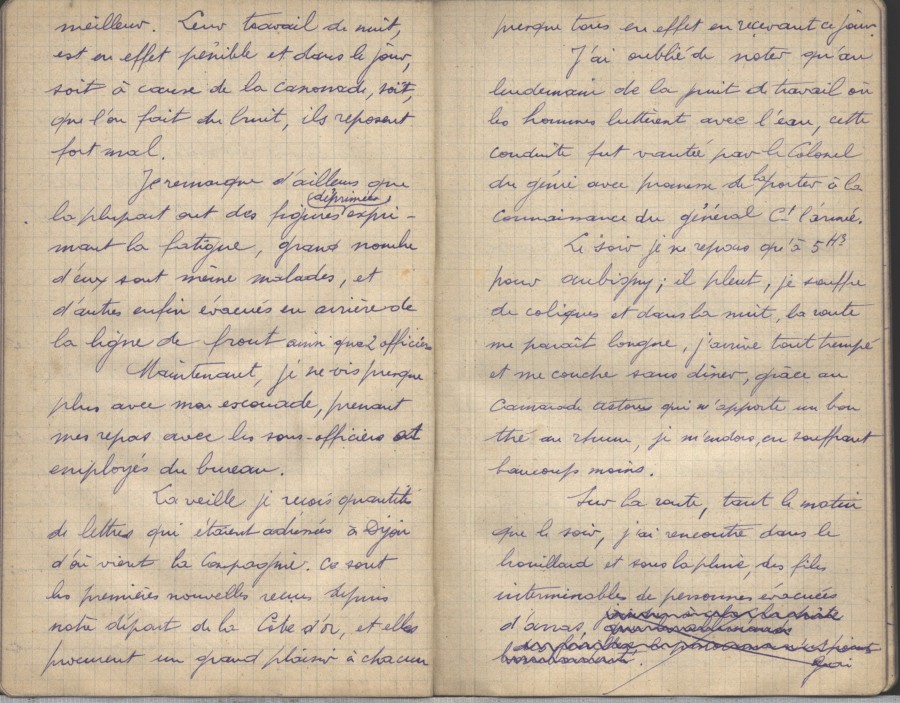 meilleur. Leur travail de nuit,
est en effet pénible et dans le jour,
soit à cause de la canonnade, soit,
que l'on fait du bruit, ils reposent
fort mal.
Je remarque d'ailleurs que
déprimées
la plupart ont des figures expri-
mant la fatigue, grand nombre
d'eux sont même malades, et
d'autres enfin évacués en arrière de
la ligne de front ainsi que 2 officiers
Maintenant, je ne vis presque
plus avec mon escouade, prenant
mes repas avec les sous-officiers et
employés du bureau.
La veille je reçois quantité
de lettres qui étaient adressées à Dijon
d'où vient la Compagnie. Ce sont
les premières nouvelles reçues depuis
notre départ de la Côte d'Or, et elles
procurent un grand plaisir à chacun
presque tous en effet en reçevant ce jour.
J'ai oublié de noter qu'au
lendemain de la nuit de travail où
les hommes luttèrent avec l'eau, cette
conduite fut vantée par le Colonel
du génie avec promesse de la porter à la
connaissance du général Ct l'armée.
Le soir je ne repars qu'à 5 Hes
pour aubigny; il pleut, je souffre
de coliques et dans la nuit, la route
me paraît longue, j'arrive tout trempé
et me couche sans dîner, grâce au
camarade qui m'apporte un bon
thé au rhum, je m'endors, en souffrant
beaucoup moins.
Sur la route, tant le matin
que le soir, j'ai rencontré dans le
brouillard et sous la pluie, des files
interminables de personnes évacuées
d'arras,